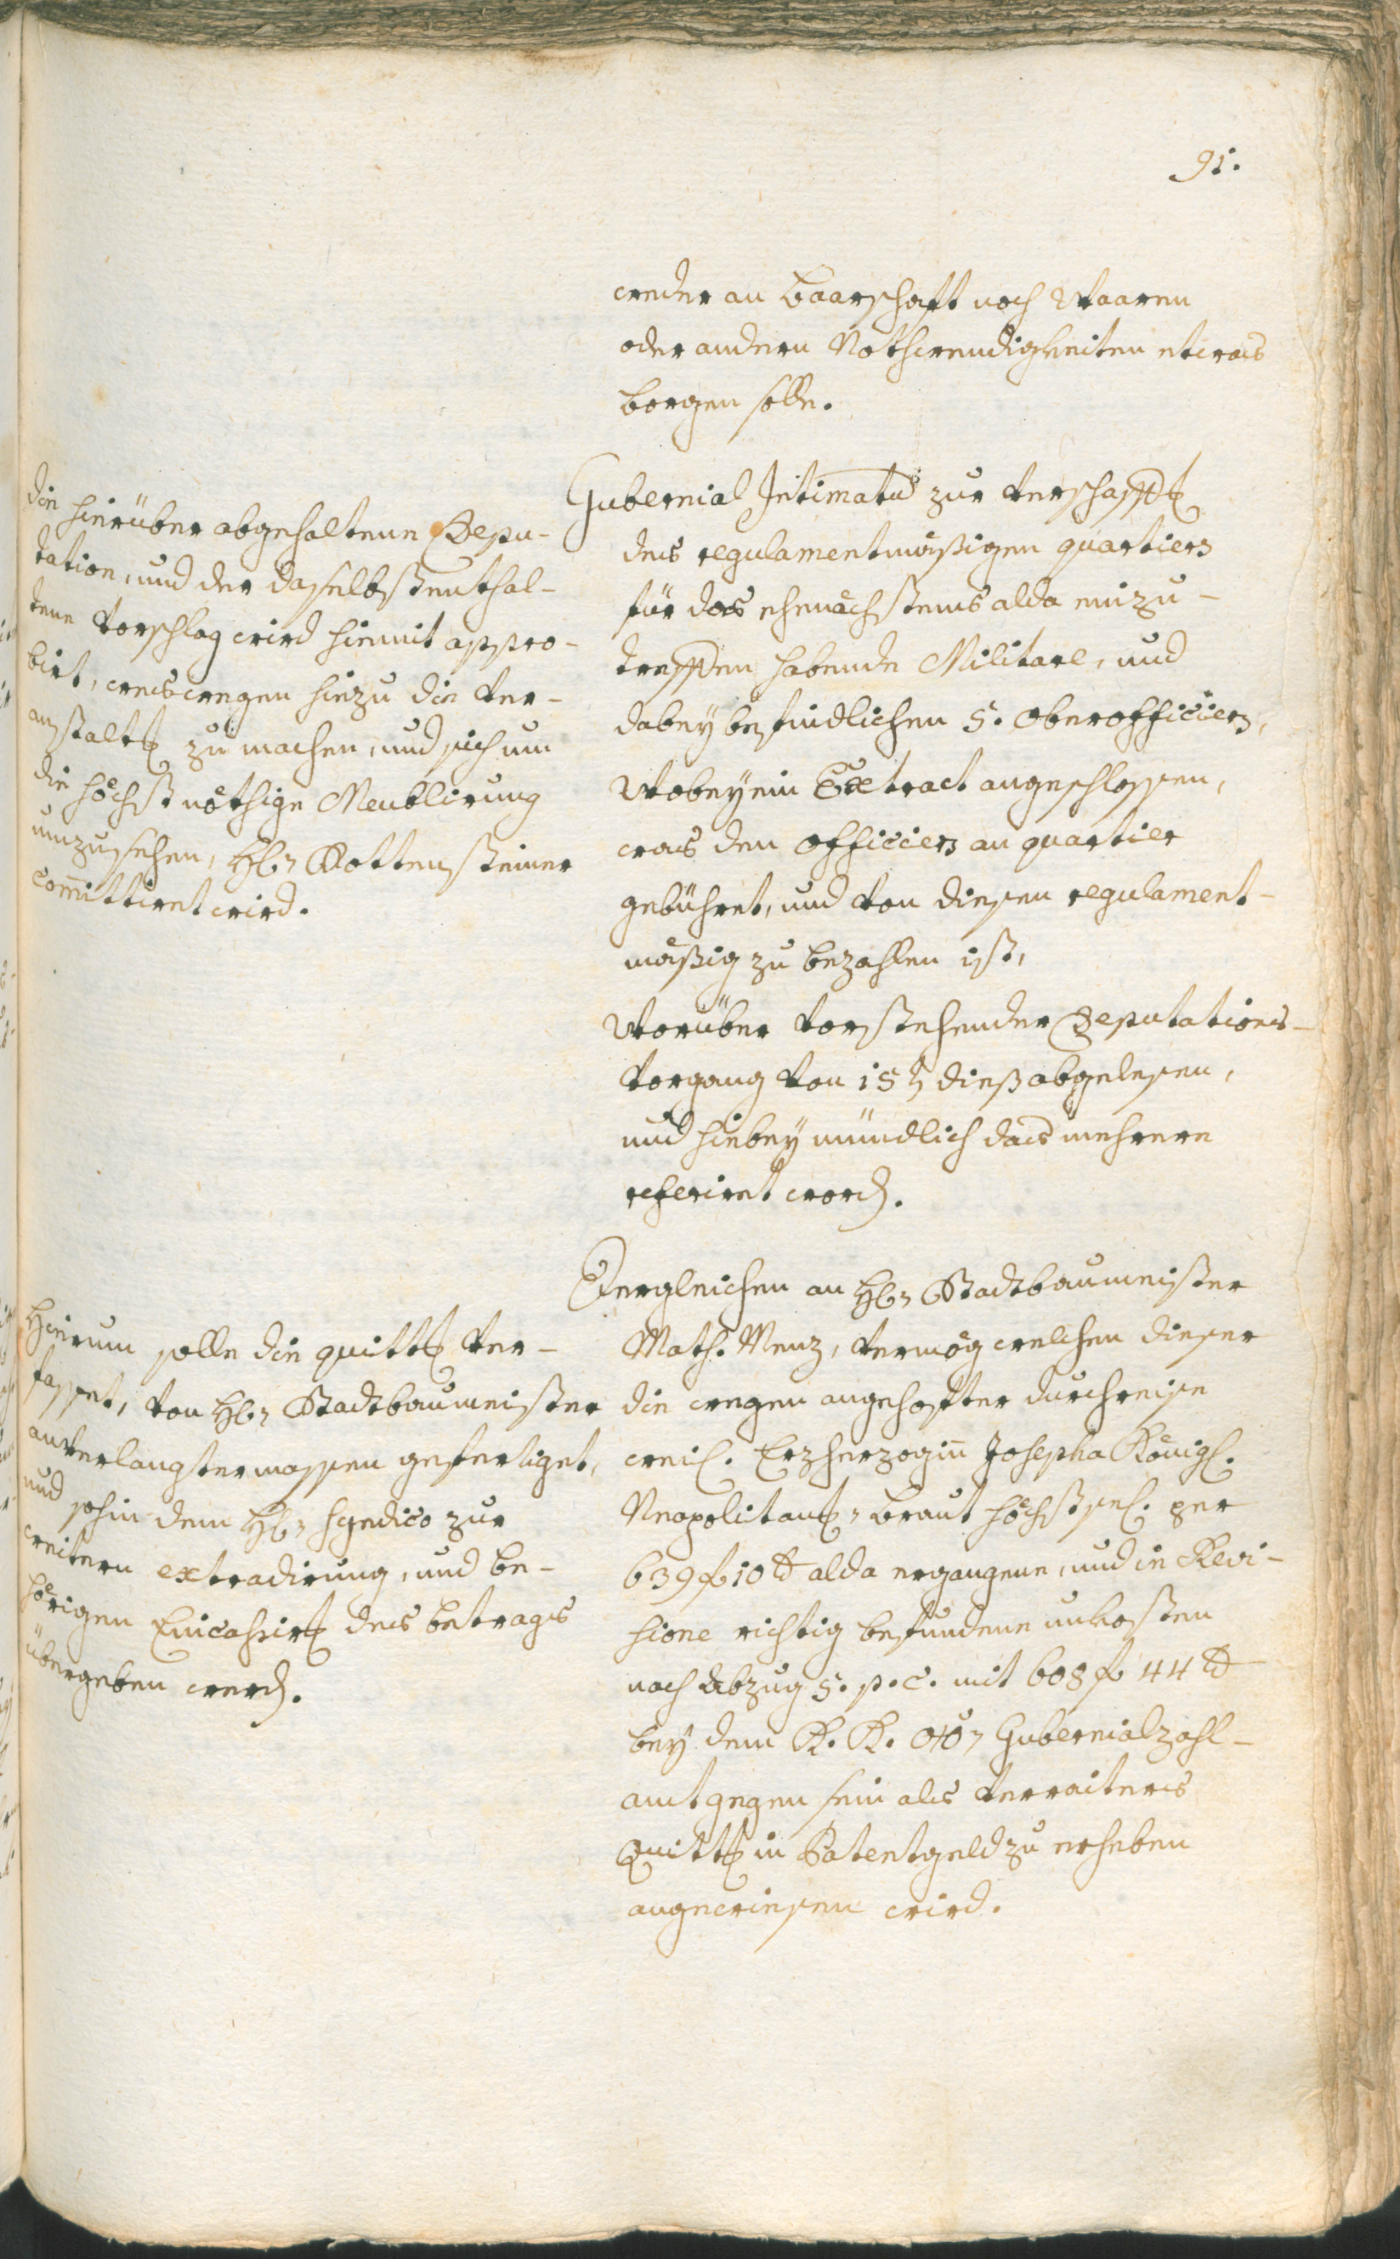 91.
weder an baarschaft noch Waaren
oder andern Nothwendigkeiten etwas
borgen solle.
Gubernial Intimatū zur verschaffg
des regulamentmäßigen quartiers
für das ehenächstens alda einzu-
treffen habende Militare, und
dabey befindlichen 5. Oberofficiers,
Wobey ein Extract angeschlossen,
was den officiers an quartier
gebühret, und von diesen regulament-
mäßig zu bezahlen ist,
Worüber vorstehender Deputations-
vorgang von 15t dieß abgelesen,
und hiebey mündlich das mehrere
referiret word.
die hierüber abgehaltene Depu-
tation, und der daselbst enthal-
tene Vorschlag wird hiemit appro-
birt, weswegen hiezu die ver-
anstaltg zu machen, und sich um
die höchst nöthige Meublirung
umzusehen, Hr Rottensteiner
com̄ittiret wird.
Dergleichen an Hr Stadtbaumeister
Math. Menz, vermög welchen dieser
die wegen angehoffter durchreise
weil. Erzherzogin̄ Josepha Königl.
Neapolitan. braut höchstsel. per
639 f 10 xr alda ergangene, und in Revi-
sione richtig befundene unkosten
nach Abzug 5. p. c. mit 608 f 44 xr
bey dem K. K. OÖ. Gubernialzahl-
amt gegen sein als Verraiters
Quittg in Patentgeld zu erheben
angewiesen wird.
Hierum solle die quittg ver-
fasset, von Hr Stadtbaumeister
anverlangtermassen gefertiget,
und sohin dem Hr Syndico zur
weitern extradirung, und be-
hörigen Eincassirg des betrags
übergeben werd.